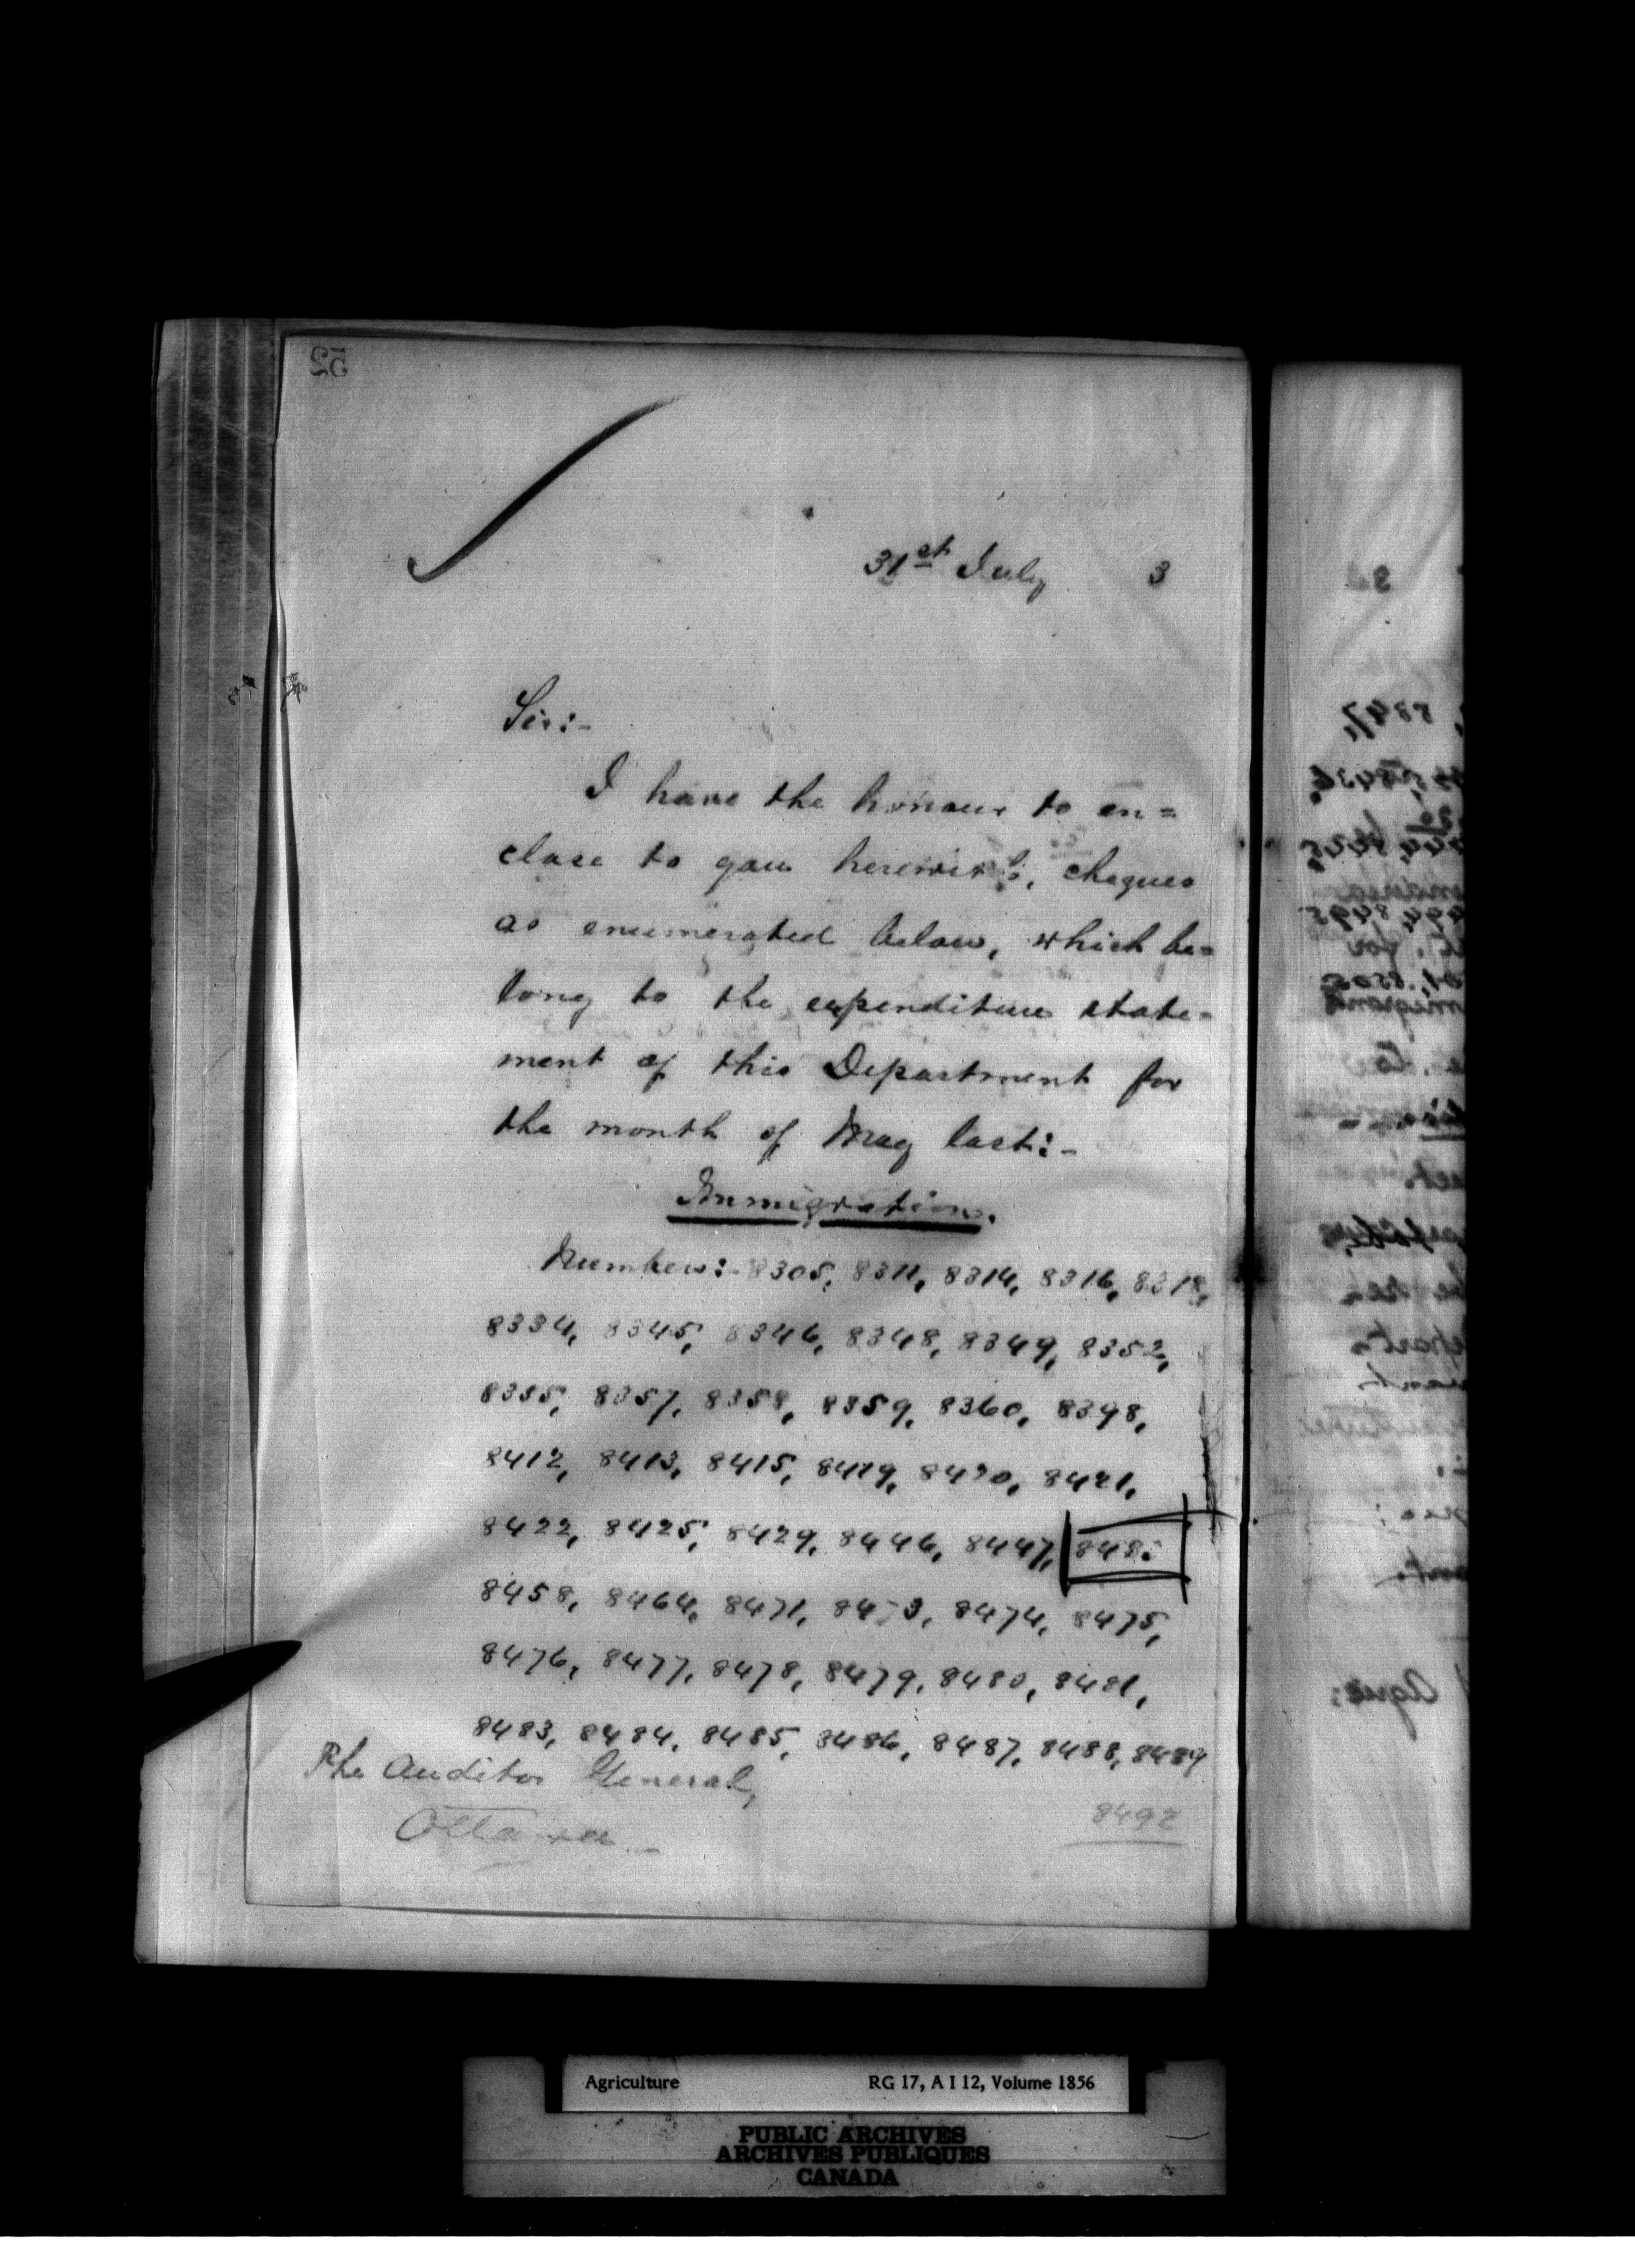 52
31st July 3
Sir:-
I have the honour to en=
close to you herewith, cheques
as enumerated below, which be=
long to the expenditure state-
ment of this Department for
the month of May last:-
Immigration.
Numbers:- 8305, 8311, 8314, 8316, 8318,
8334, 8345, 8346, 8348, 8349, 8352,
8355, 8357, 8358, 8359, 8360, 8398,
8412, 8413, 8415, 8419, 8420, 8421,
8422, 8425, 8429, 8446, 8447,
8458, 8464, 8471, 8473, 8474, 8475,
8476, 8477, 8478, 8479, 8480, 8481,
8483, 8484, 8485, 8486, 8487, 8488, 8489
The Auditor General,
Ottawa
8492
Agriculture RG 17, A I 12, Volume 1856
PUBLIC ARCHIVES
ARCHIVES PUBLIQUES
CANADA